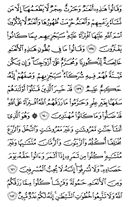 وَقَالُوا۟ هَٰذِهِۦٓ أَنْعَٰمٌ وَحَرْثٌ حِجْرٌ لَّا يَطْعَمُهَآ إِلَّا مَن
نَّشَآءُ بِزَعْمِهِمْ وَأَنْعَٰمٌ حُرِّمَتْ ظُهُورُهَا وَأَنْعَٰمٌ لَّا يَذْكُرُونَ
ٱسْمَ ٱللَّهِ عَلَيْهَا ٱفْتِرَآءً عَلَيْهِ سَيَجْزِيهِم بِمَا كَانُوا۟
يَفْتَرُونَ ١٣٨ وَقَالُوا۟ مَا فِى بُطُونِ هَٰذِهِ ٱلْأَنْعَٰمِ
خَالِصَةٌ لِّذُكُورِنَا وَمُحَرَّمٌ عَلَىٰٓ أَزْوَٰجِنَا وَإِن يَكُن
مَّيْتَةً فَهُمْ فِيهِ شُرَكَآءُ سَيَجْزِيهِمْ وَصْفَهُمْ إِنَّهُۥ
حَكِيمٌ عَلِيمٌ ١٣٩ قَدْ خَسِرَ ٱلَّذِينَ قَتَلُوٓا۟ أَوْلَٰدَهُمْ
سَفَهًۢا بِغَيْرِ عِلْمٍ وَحَرَّمُوا۟ مَا رَزَقَهُمُ ٱللَّهُ ٱفْتِرَآءً عَلَى
ٱللَّهِ قَدْ ضَلُّوا۟ وَمَا كَانُوا۟ مُهْتَدِينَ ١٤٠ ۞ وَهُوَ ٱلَّذِىٓ
أَنشَأَ جَنَّٰتٍ مَّعْرُوشَٰتٍ وَغَيْرَ مَعْرُوشَٰتٍ وَٱلنَّخْلَ وَٱلزَّرْعَ
مُخْتَلِفًا أُكُلُهُۥ وَٱلزَّيْتُونَ وَٱلرُّمَّانَ مُتَشَٰبِهًا
وَغَيْرَ مُتَشَٰبِهٍ كُلُوا۟ مِن ثَمَرِهِۦٓ إِذَآ أَثْمَرَ وَءَاتُوا۟ حَقَّهُۥ
يَوْمَ حَصَادِهِۦ وَلَا تُسْرِفُوٓا۟ إِنَّهُۥ لَا يُحِبُّ ٱلْمُسْرِفِينَ ١٤١
وَمِنَ ٱلْأَنْعَٰمِ حَمُولَةً وَفَرْشًا كُلُوا۟ مِمَّا رَزَقَكُمُ ٱللَّهُ
وَلَا تَتَّبِعُوا۟ خُطُوَٰتِ ٱلشَّيْطَٰنِ إِنَّهُۥ لَكُمْ عَدُوٌّ مُّبِينٌ ١٤٢